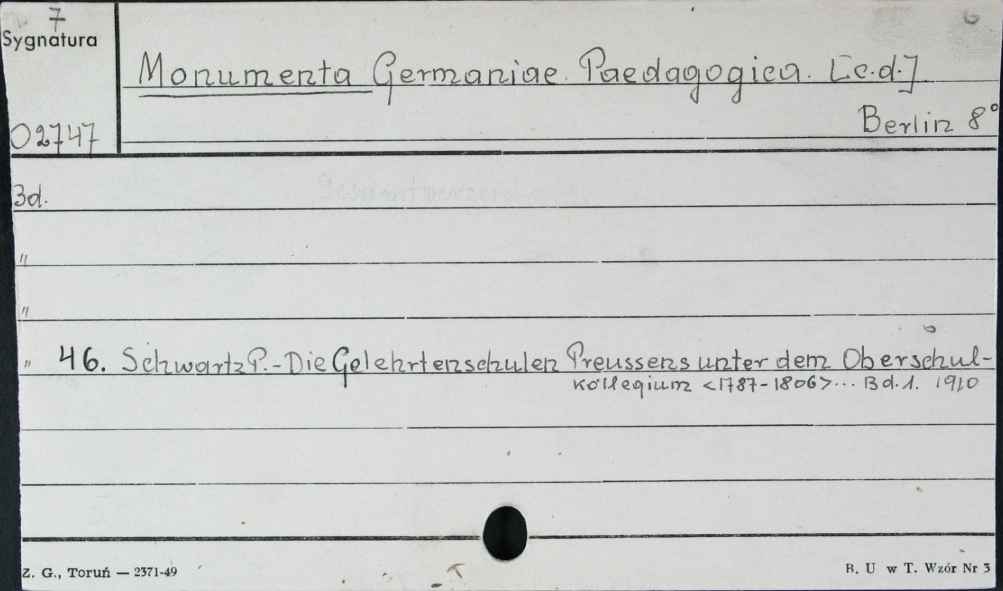 7
Sygnatura
Monumenta Germaniae Paedagogica. [c.d.]
Berlin 8°
02747
Bd.
"
"
" 46. Schwartz P. - Die Gelehrtenschulen Preussens unter dem Oberschul-
kollegium <1787-1806>... Bd. 1. 1910
Z. G., Toruń — 2371-49
B. U w T. Wzór Nr 3